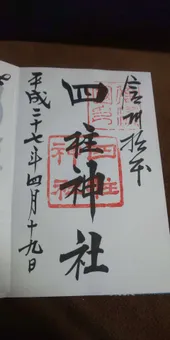 信州松本
四柱神社
平成二十七年四月十九日